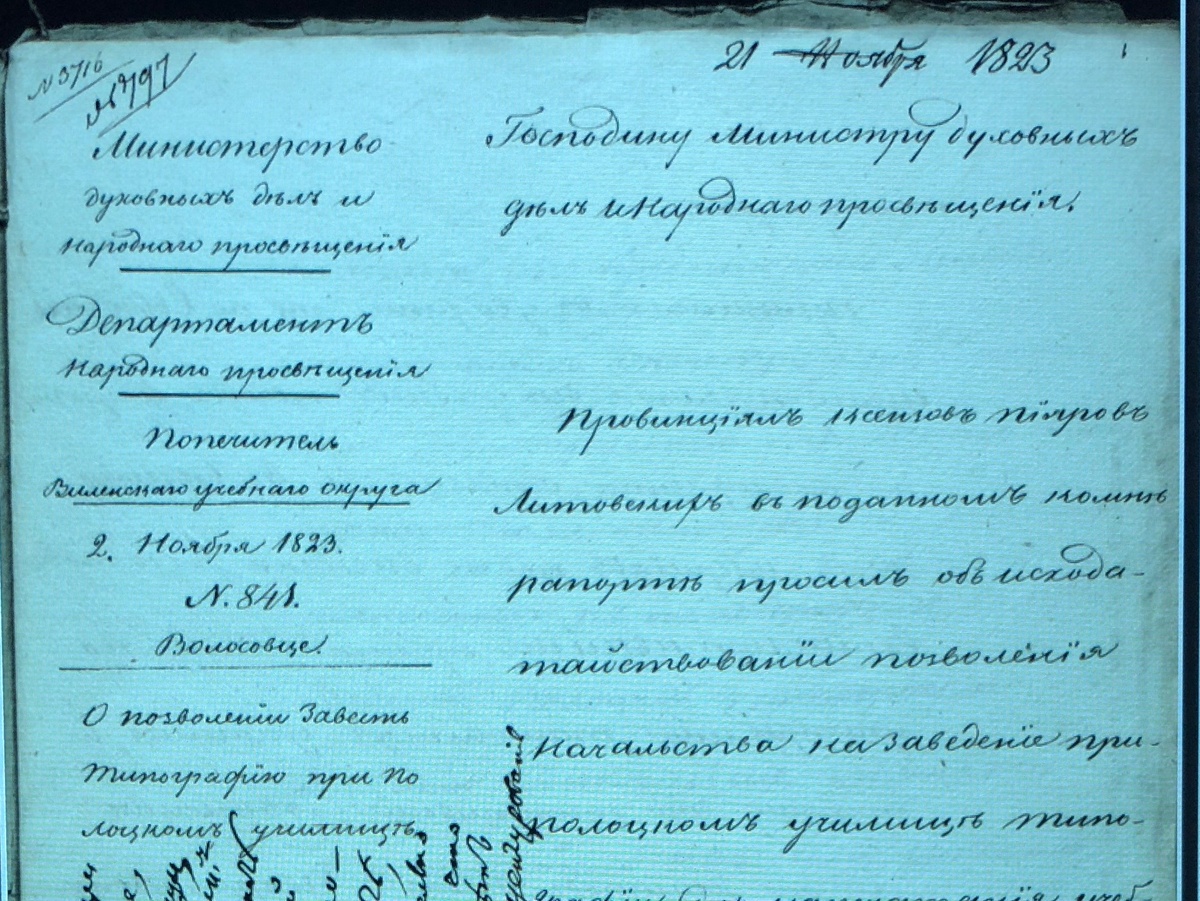 N 3716
№ 3797
21 Ноября 1823
Министерство
духовныхъ дѣлъ и
народнаго просвѣщенія
Департаментъ
народнаго просвѣщенія
Попечитель
Виленскаго учебнаго округа
2. Ноября 1823.
N. 841.
Волосовце.
О позволеніи завесть
типографію при По
лоцкомъ училищѣ
Господину Министру духовныхъ
дѣлъ и Народнаго просвѣщенія.
Провинціялъ ксензовъ піяровъ
Литовскихъ въ поданномъ комнѣ
рапортѣ просилъ объ исхода-
тайствованіи позволенія
Начальства на заведеніе при-
полоцкомъ училищѣ типо-